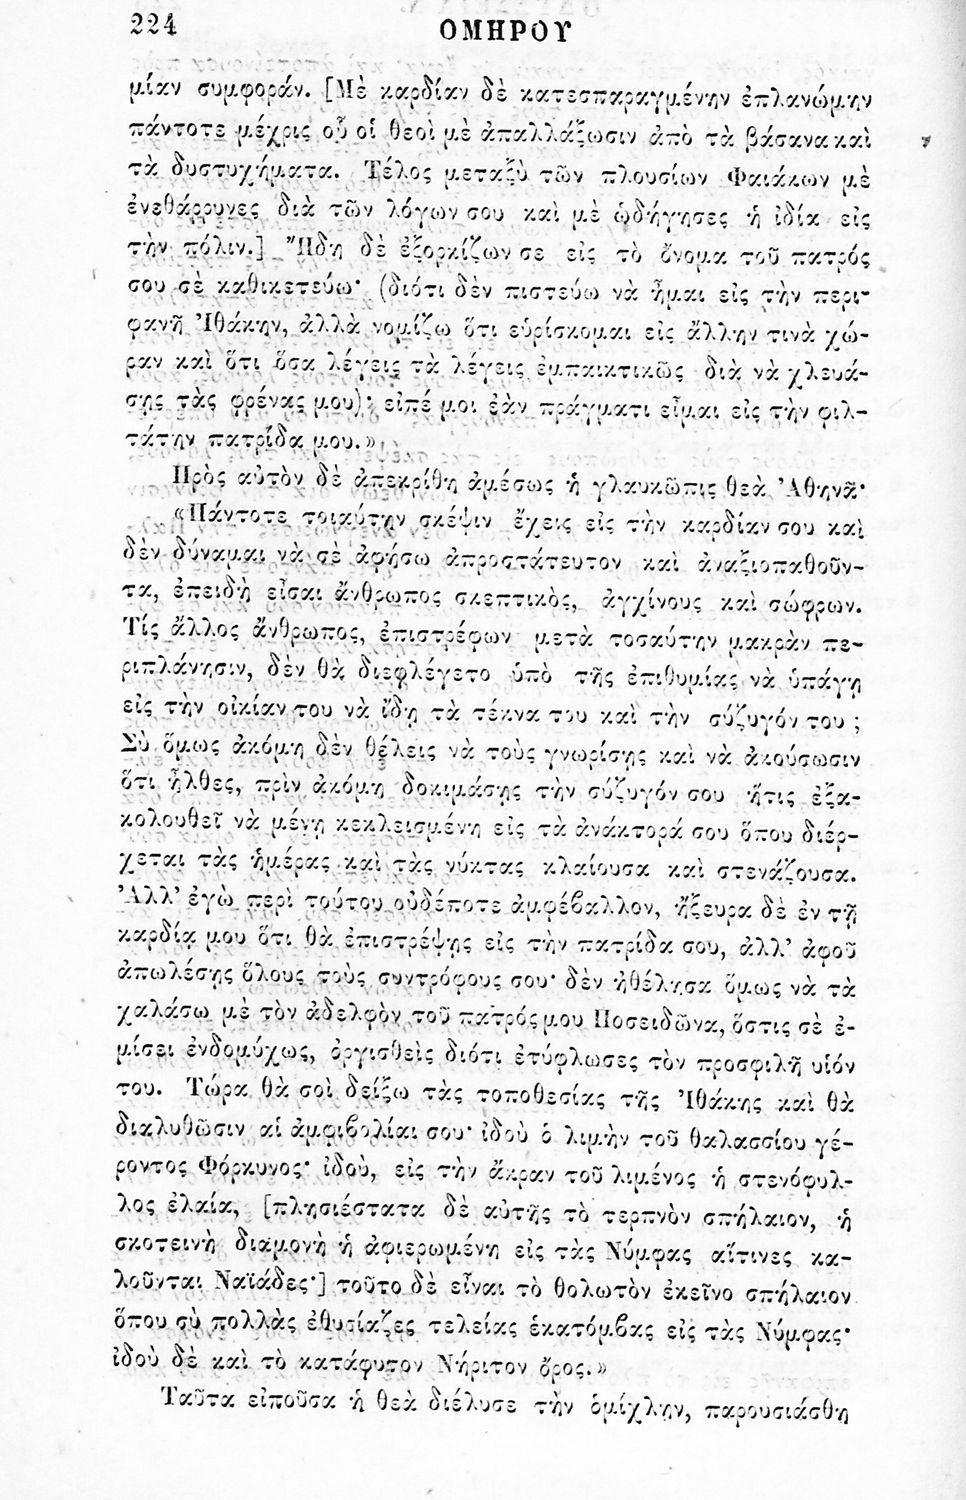 224
ΟΜΗΡΟΥ
μίαν συμφοράν. [Μὲ καρδίαν δὲ κατεσπαραγμένην ἐπλανώμην
πάντοτε μέχρις οὗ οἱ θεοὶ μὲ ἀπαλλάξωσιν ἀπὸ τὰ βάσανα καὶ
τὰ δυστυχήματα. Τέλος μεταξὺ τῶν πλουσίων Φαιάκων μὲ
ἐνεθάρρυνες διὰ τῶν λόγων σου καὶ μὲ ὡδήγησες ἡ ἰδία εἰς
τὴν πόλιν.] Ἤδη δὲ ἐξορκίζων σε εἰς τὸ ὄνομα τοῦ πατρός
σου σὲ καθικετεύω· (διότι δὲν πιστεύω νὰ ἦμαι εἰς τὴν περι-
φανῆ Ἰθάκην, ἀλλὰ νομίζω ὅτι εὑρίσκομαι εἰς ἄλλην τινὰ χώ-
ραν καὶ ὅτι ὅσα λέγεις τὰ λέγεις ἐμπαικτικῶς διὰ νὰ χλευά-
σῃς τὰς φρένας μου)· εἰπέ μοι ἐὰν πράγματι εἶμαι εἰς τὴν φιλ-
τάτην πατρίδα μου.»
Πρὸς αὐτὸν δὲ ἀπεκρίθη ἀμέσως ἡ γλαυκῶπις θεὰ Ἀθηνᾶ·
«Πάντοτε τοιαύτην σκέψιν ἔχεις εἰς τὴν καρδίαν σου καὶ
δὲν δύναμαι νὰ σὲ ἀφήσω ἀπροστάτευτον καὶ ἀναξιοπαθοῦν-
τα, ἐπειδὴ εἶσαι ἄνθρωπος σκεπτικὸς, ἀγχίνους καὶ σώφρων.
Τίς ἄλλος ἄνθρωπος, ἐπιστρέφων μετὰ τοσαύτην μακρὰν πε-
ριπλάνησιν, δὲν θὰ διεφλέγετο ὑπὸ τῆς ἐπιθυμίας νὰ ὑπάγῃ
εἰς τὴν οἰκίαν του νὰ ἴδῃ τὰ τέκνα του καὶ τὴν σύζυγόν του ;
Σὺ ὅμως ἀκόμη δὲν θέλεις νὰ τοὺς γνωρίσῃς καὶ νὰ ἀκούσωσιν
ὅτι ἦλθες, πρὶν ἀκόμη δοκιμάσῃς τὴν σύζυγόν σου ἥτις ἐξα-
κολουθεῖ νὰ μένῃ κεκλεισμένη εἰς τὰ ἀνάκτορά σου ὅπου διέρ-
χεται τὰς ἡμέρας καὶ τὰς νύκτας κλαίουσα καὶ στενάζουσα.
Ἀλλ' ἐγὼ περὶ τούτου οὐδέποτε ἀμφέβαλλον, ἤξευρα δὲ ἐν τῇ
καρδίᾳ μου ὅτι θὰ ἐπιστρέψῃς εἰς τὴν πατρίδα σου, ἀλλ' ἀφοῦ
ἀπωλέσῃς ὅλους τοὺς συντρόφους σου· δὲν ἠθέλησα ὅμως νὰ τὰ
χαλάσω μὲ τὸν ἀδελφὸν τοῦ πατρός μου Ποσειδῶνα, ὅστις σὲ ἐ-
μίσει ἐνδομύχως, ὀργισθεὶς διότι ἐτύφλωσες τὸν προσφιλῆ υἱόν
του. Τώρα θὰ σοὶ δείξω τὰς τοποθεσίας τῆς Ἰθάκης καὶ θὰ
διαλυθῶσιν αἱ ἀμφιβολίαι σου· ἰδοὺ ὁ λιμὴν τοῦ θαλασσίου γέ-
ροντος Φόρκυνος· ἰδοὺ, εἰς τὴν ἄκραν τοῦ λιμένος ἡ στενόφυλ-
λος ἐλαία, [πλησιέστατα δὲ αὐτῆς τὸ τερπνὸν σπήλαιον, ἡ
σκοτεινὴ διαμονὴ ἡ ἀφιερωμένη εἰς τὰς Νύμφας αἵτινες κα-
λοῦνται Ναϊάδες·] τοῦτο δὲ εἶναι τὸ θολωτὸν ἐκεῖνο σπήλαιον
ὅπου σὺ πολλὰς ἐθυσίαζες τελείας ἑκατόμβας εἰς τὰς Νύμφας·
ἰδοὺ δὲ καὶ τὸ κατάφυτον Νήριτον ὄρος.»
Ταῦτα εἰποῦσα ἡ θεὰ διέλυσε τὴν ὁμίχλην, παρουσιάσθη